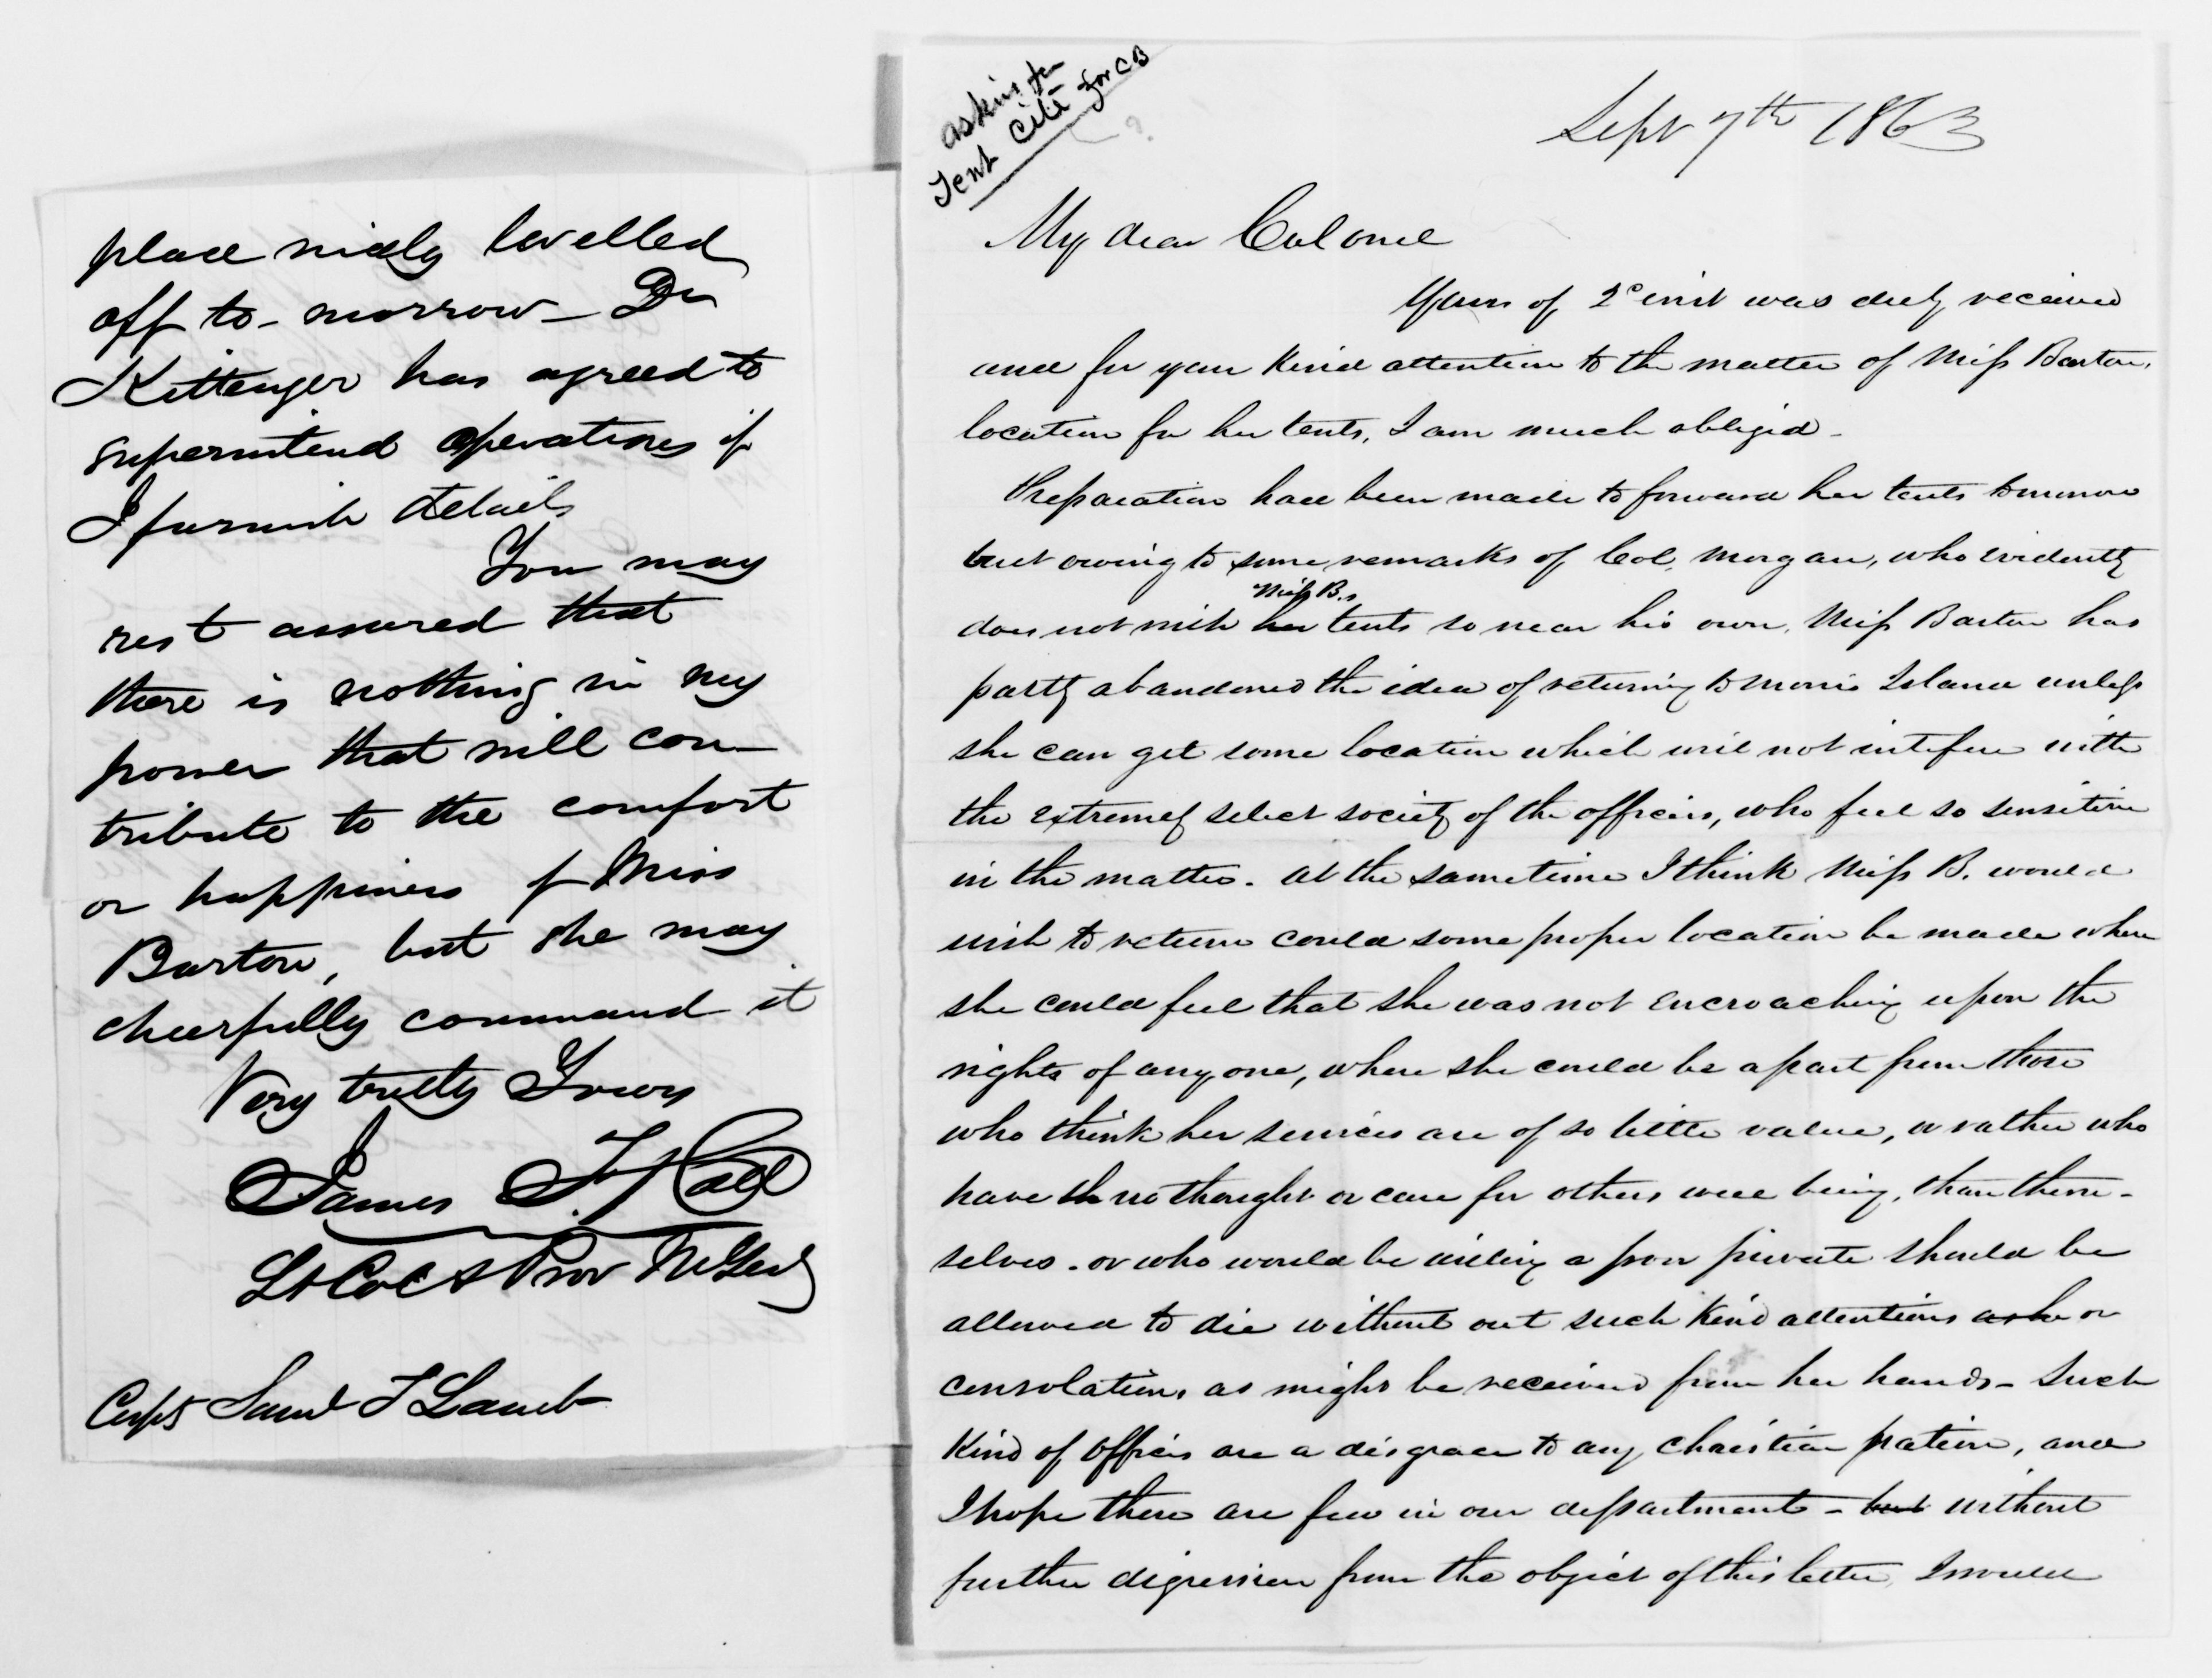 place nicely levelled
off to-morrow - Dr
Kittenger has agreed to
superintend operations if
I furnish details
You may
rest assured that
there is nothing in my
power that will con-
tribute to the comfort
or happiness of Miss
Barton, but she may
cheerfully command it
Very truly Yours
James F. Hall
Lt Col & Prov M Genl
Capt Saml T Lamb
asking for
Tent Cite for CB
?
Sept 7th 1863
My dear Colonel
Yours of 2d inst was duly received
and for your kind attention to the matter of Miss Barton,
location for her tents, I am much obliged -
Preparation had been made to forward her tents tomorrow
but owing to some remarks of Col. Morgan, who evidently
Miss B.s
does not wish her tents so near his own, Miss Barton has
partly abandoned the idea of returning to Morris Island unless
she can get some location which will not intefere with
the extremely select society of the officers, who feel so sensitive
in the matter. At the sametime I think Miss B. would
wish to return could some proper location be made where
she could feel that she was not encroaching upon the
rights of any one, where she could be apart from those
who think her services are of so little value, or rather who
have th no thought or care for others well being, than them-
selves. or who would be willing a poor private should be
allowed to die without out such kind attentions as he or
consolations as might be received from her hands - Such
kind of officers are a disgrace to any christian nation, and
I hope there are few in our department - but without
further digression from the object of this letter, I would